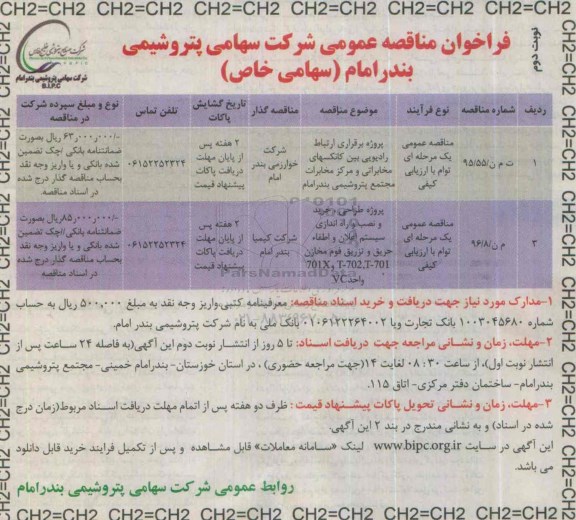 CH2=CH2 CH2=CH2 CH2=CH2 CH2=CH2 CH2=CH2 CH2=CH2 CH2=CH2
نوبت دوم
فراخوان مناقصه عمومی شرکت سهامی پتروشیمی
بندرامام (سهامی خاص)
شرکت سهامی پتروشیمی بندرامام
B.I.P.C
ردیف
شماره مناقصه
نوع فرآیند
موضوع مناقصه
مناقصه گذار
تاریخ گشایش پاکات
تلفن تماس
نوع و مبلغ سپرده شرکت در مناقصه
۱
ت م ن/۹۵/۵۵
مناقصه عمومی
یک مرحله ای
توام با ارزیابی
کیفی
پروژه برقراری ارتباط
رادیویی بین کانکسهای
مخابراتی و مرکز مخابرات
مجتمع پتروشیمی بندرامام
شرکت
خوارزمی بندر
امام
۲ هفته پس
از پایان مهلت
دریافت پاکات
پیشنهاد قیمت
۰۶۱۵۲۲۵۲۳۲۴
۶۳٫۰۰۰٫۰۰۰/- ریال بصورت
ضمانتنامه بانکی /چک تضمین
شده بانکی و یا واریز وجه نقد
بحساب مناقصه گذار درج شده
در اسناد مناقصه
۲
م ن/۹۶/۸
مناقصه عمومی
یک مرحله ای
توام با ارزیابی
کیفی
پروژه طراحی، خرید
و نصب و راه اندازی
سیستم اعلان و اطفاء
حریق و تزریق فوم مخازن
701X, T-702,T-701
واحدVC
شرکت کیمیا
بندر امام
۲ هفته پس
از پایان مهلت
دریافت پاکات
پیشنهاد قیمت
۰۶۱۵۲۲۵۲۳۲۴
۸۵٫۰۰۰٫۰۰۰/-ریال بصورت
ضمانتنامه بانکی/چک تضمین
شده بانکی و یا واریز وجه نقد
بحساب مناقصه گذار درج شده
در اسناد مناقصه
۱-مدارک مورد نیاز جهت دریافت و خرید اسناد مناقصه: معرفینامه کتبی،واریز وجه نقد به مبلغ ۵۰۰٫۰۰۰ ریال به حساب
شماره ۱۰۰۳۰۴۵۶۸۰ بانک تجارت ویا ۰۱۰۶۱۲۲۲۶۴۰۰۲ بانک ملی به نام شرکت پتروشیمی بندر امام.
۲-مهلت، زمان و نشانی مراجعه جهت دریافت اسناد: تا ۵ روز از انتشار نوبت دوم این آگهی(به فاصله ۲۴ ساعت پس از
انتشار نوبت اول)، از ساعت ۰۸:۳۰ لغایت ۱۴(جهت مراجعه حضوری) ، در استان خوزستان- بندرامام خمینی- مجتمع پتروشیمی
بندرامام- ساختمان دفتر مرکزی- اتاق ۱۱۵.
۳-مهلت، زمان و نشانی تحویل پاکات پیشنهاد قیمت : ظرف دو هفته پس از اتمام مهلت دریافت اسناد مربوط(زمان درج
شده در اسناد) و به نشانی مندرج در بند ۲ این آگهی.
این آگهی در سایت www.bipc.org.ir لینک «سامانه معاملات» قابل مشاهده و پس از تکمیل فرایند خرید قابل دانلود
می باشد.
روابط عمومی شرکت سهامی پتروشیمی بندرامام
CH2=CH2 CH2=CH2 CH2=CH2 CH2=CH2 CH2=CH2 CH2=CH2 CH2=CH2